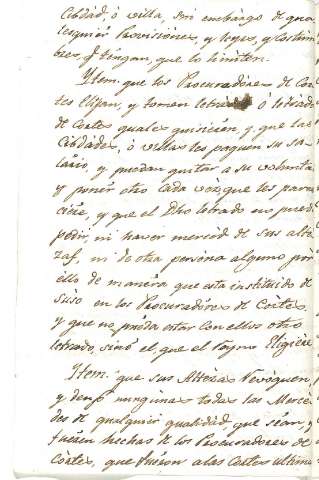 Cibdad, ó villa, sin embargo de qua
lesquier Provisiones, y leyes, y costum
bres, q̃ tengan, que lo limiten.
Ytem. que los Procuradores de Cor
tes Elijan, y tomen letrado ó letrados
de Cortes quales quisieren, y que las
Cibdades, ó villas les paguen su sa
lario, y puedan quitar a su volunta
y poner otro cada vez, que les pare
ciere, y que el Dho letrado no pued
pedir, ni haver merced de sus alte
zas, ni de otra persona alguna por
ello de manera que esta instituido de
suso en los Procuradores de Cortes,
y que no pueda estar con ellos otro
letrado, sinó el, que el Reyno Eligiere
Ytem. que sus Altezas Revoquen,
y den por ningunas todas las Merce
des de qualquier qualidad, que sean, y
fueren hechas de los Procuradores de
Cortes, que fueron a las Cortes ultima